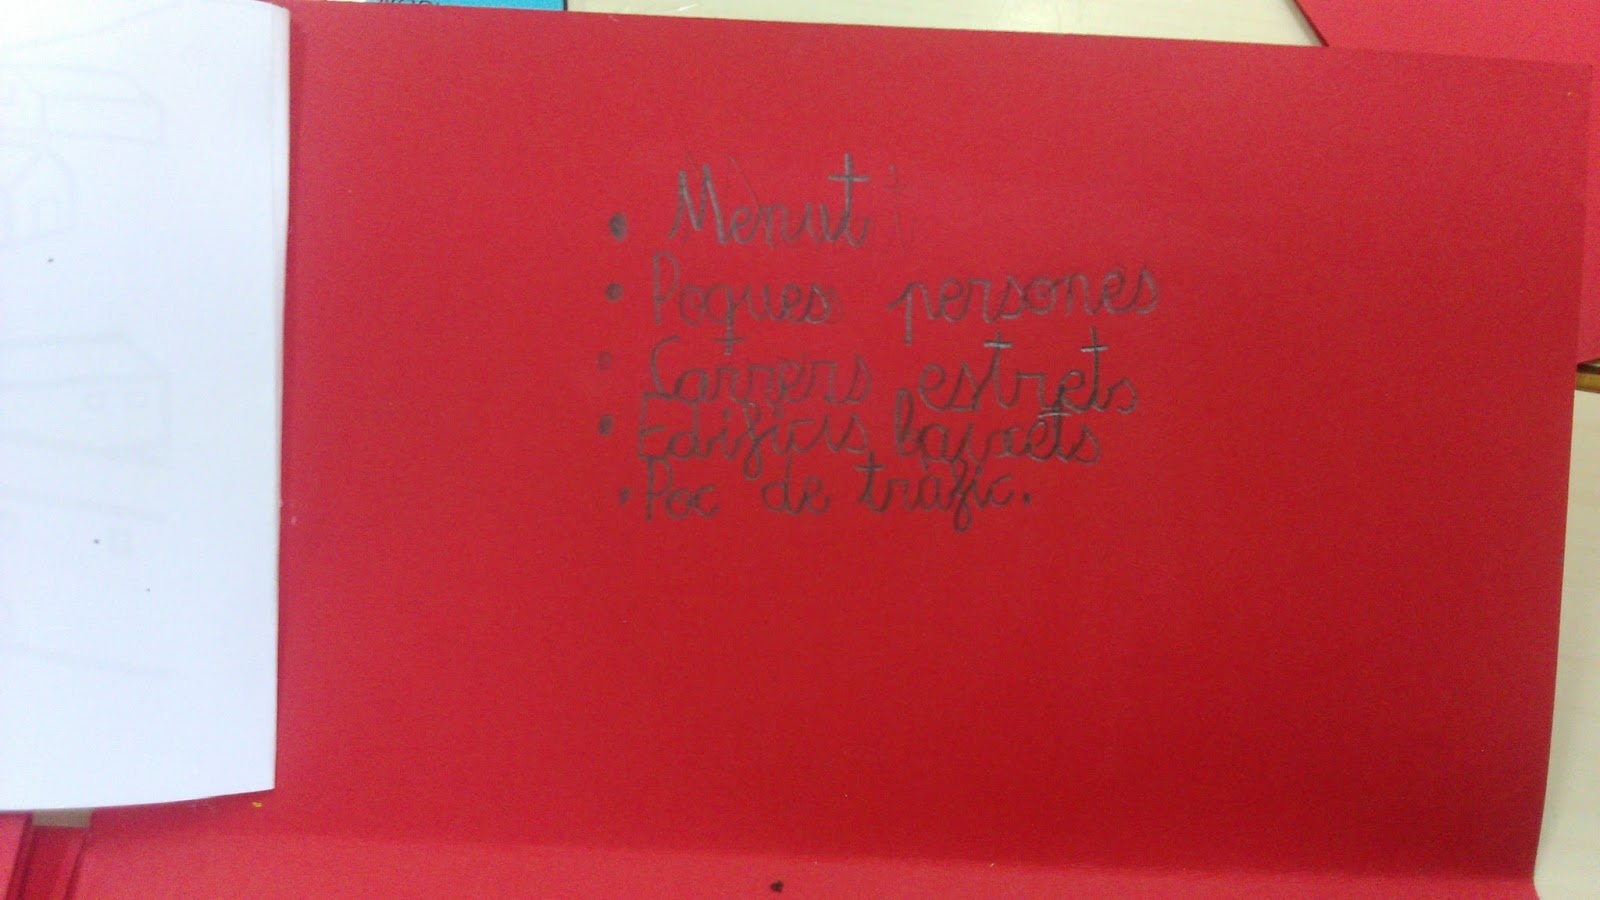 • Menut
• Poques persones
• Carrers estrets
• Edificis baixets
• Poc de trafic.